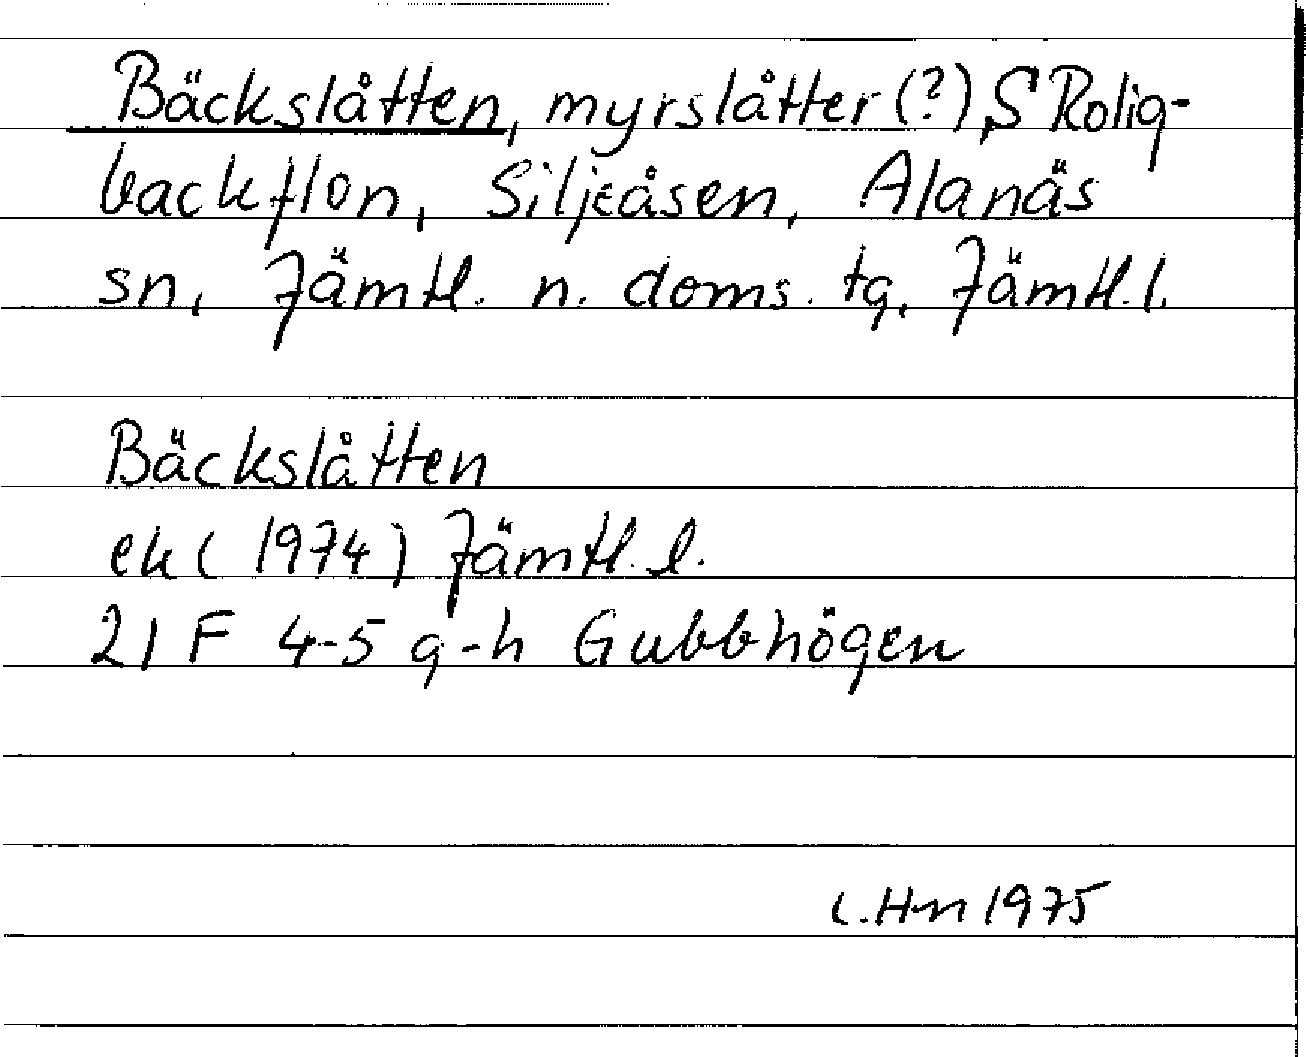 Bäckslåtten, myrslåtter (?), S Rolig-
backflon, Siljeåsen, Alanäs
sn, Jämtl. n. doms. tg, Jämtl. l.
Bäckslåtten
ek (1974) Jämtl. l.
21 F 4-5 g-h Gubbhögen
C. Hn 1975